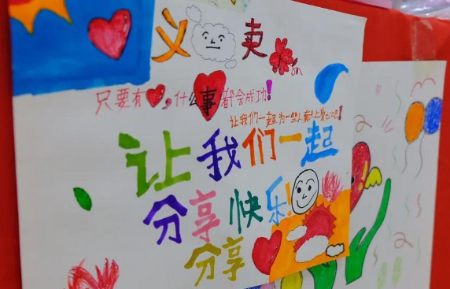 义卖
只要有,什么事都会成功!
让我们一起
让我们一起
分享快乐!
分享